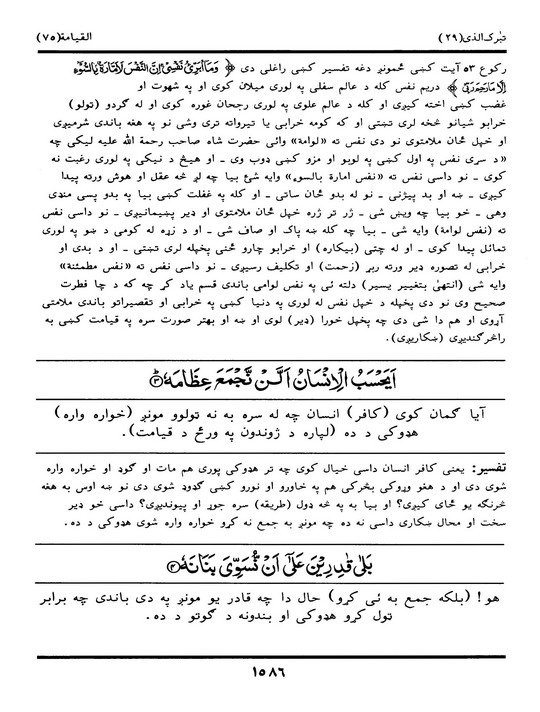 تبٰرک الذی (۲۹)
القیامة (۷۵)
رکوع ۵۳ آیت کښې ځمونږ دغه تفسیر کښې راغلی دی ﴿ وَمَآ اُبَرِّئُ نَفْسِیْ اِنَّ النَّفْسَ لَاَمَّارَةٌ بِالسُّوْٓءِ
اِلَّا مَا رَحِمَ رَبِّیْ ﴾ دریم نفس کله د عالم سفلی په لوری میلان کوی او په شهوت او
غضب کښې اخته کیږی او کله د عالم علوی په لوری رجحان غوره کوی او له ګردو (ټولو)
خرابو شیانو څخه لری تښتی او که کومه خرابی یا تیرواته تری وشی نو په هغه باندی شرمیږی
او خپل ځان ملامتوی نو دی نفس ته «لوامة» وائی حضرت شاه صاحب رحمة الله علیه لیکی چه
«د سری نفس په اول کښې په لوبو او مزو کښې ډوب وی ـ او هیڅ د نیکی په لوری رغبت نه
کوی ـ نو داسی نفس ته «نفس امارة بالسوء» وایه شئ بیا چه لږ څه عقل او هوش ورته پیدا
کیږی ـ ښه او بد پیژنی ـ نو له بدو ځان ساتی ـ او کله په غفلت کښې بیا په بدو پسی منډی
وهی ـ خو بیا چه ویښ شی ـ ژر تر ژره خپل ځان ملامتوی او ډیر پښیمانیږی ـ نو داسی نفس
ته (نفس لوامة) وایه شی ـ بیا چه کله ښه پاک او صاف شی ـ او د زړه له کومی د ښو په لوری
تمائل پیدا کوی ـ او له چټی (بیکاره) او خرابو چارو څنی پخپله لری تښتی ـ او د بدی او
خرابی له تصوره ډیر ورته ربړ (زحمت) او تکلیف رسیږی ـ نو داسی نفس ته «نفس مطمئنة»
وایه شی (انتهیٰ بتغییر یسیر) دلته ئی په نفس لوامی باندی قسم یاد کړ چه که د چا فطرت
صحیح وی نو دی پخپله د خپل نفس له لوری په دنیا کښې په خرابی او تقصیراتو باندی ملامتی
آړوی او هم دا شی دی چه پخپل خورا (ډیر) لوی او ښه او بهتر صورت سره په قیامت کښې به
راڅرګندیږی (ښکاریږی).
اَیَحْسَبُ الْاِنْسَانُ اَلَّنْ نَّجْمَعَ عِظَامَهٗ ﴿۳﴾
آیا ګمان کوی (کافر) انسان چه له سره به نه ټولوو مونږ (خواره واره)
هډوکی د ده (لپاره د ژوندون په ورځ د قیامت).
تفسیر: یعنی کافر انسان داسی خیال کوی چه تر هډوکی پوری هم مات او ګوډ او خواره واره
شوی دی او د هغو وړوکی بڅرکی هم په خاورو او نورو کښې ګډوډ شوی دی نو ښه اوس به هغه
څرنګه یو ځای کیږی؟ او بیا به په څه ډول (طریقه) سره جوړ او پیوندیږی؟ داسی خو ډیر
سخت او محال ښکاری داسی نه ده چه مونږ به جمع نه کړو خواره واره شوی هډوکی د ده.
بَلٰی قٰدِرِیْنَ عَلٰٓی اَنْ نُّسَوِّیَ بَنَانَهٗ ﴿۴﴾
هو! (بلکه جمع به ئی کړو) حال دا چه قادر یو مونږ په دی باندی چه برابر
ټول کړو هډوکی او بندونه د ګوتو د ده.
۱۵۸۶